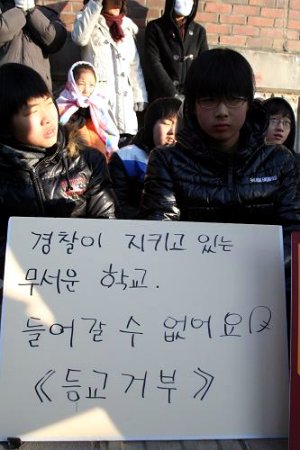 경찰이 지키고 있는
무서운 학교.
들어갈 수 없어요
《등교거부》